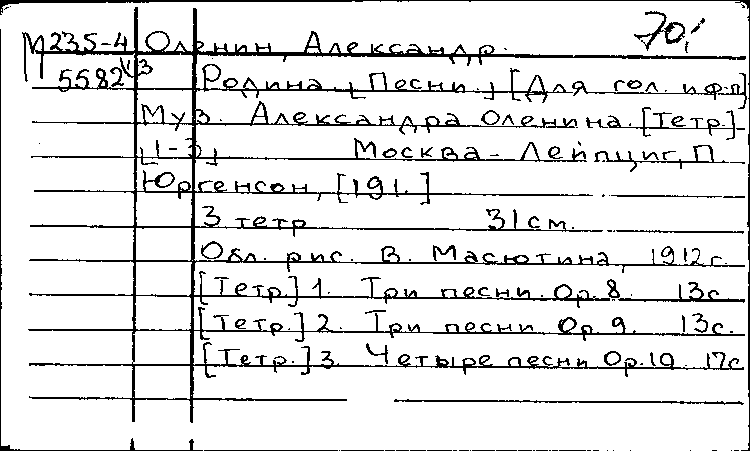 70,
М235-4 Оленин, Александр.
5582 Родина. [Песни.] [Для гол. и ф-п]
Муз. Александра Оленина. [Тетр.]
[1-3] Москва - Лейпциг, П.
Юргенсон, [191.]
3 тетр 31 см.
Обл. рис. В. Масютина, 1912 г.
[Тетр.] 1. Три песни. Ор. 8. 13 с
[Тетр.] 2. Три песни Ор. 9. 13 с.
[Тетр.] 3. Четыре песни Ор. 10 17 с